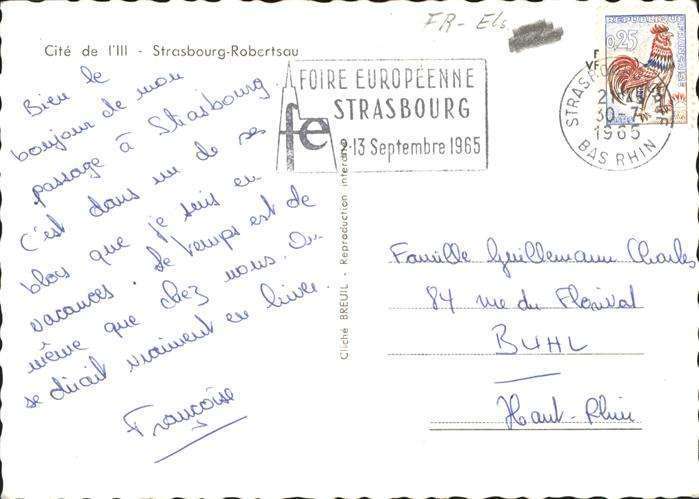 FR - Els
Cité de l'Ill - Strasbourg-Robertsau
Bien le
bonjour de mon
passage à Strasbourg.
C'est dans un de ses
blocs que je suis en
vacances. Le temps est de
même que chez nous. On
se dirait vraiment en hiver.
Françoise
FOIRE EUROPÉENNE
STRASBOURG
fe
2-13 Septembre 1965
STRASBOURG
30-7
1965
BAS RHIN
0,25
Cliché BREUIL - Reproduction interdite
Famille Guillemann Charles
84 rue du Florival
BUHL
Haut-Rhin